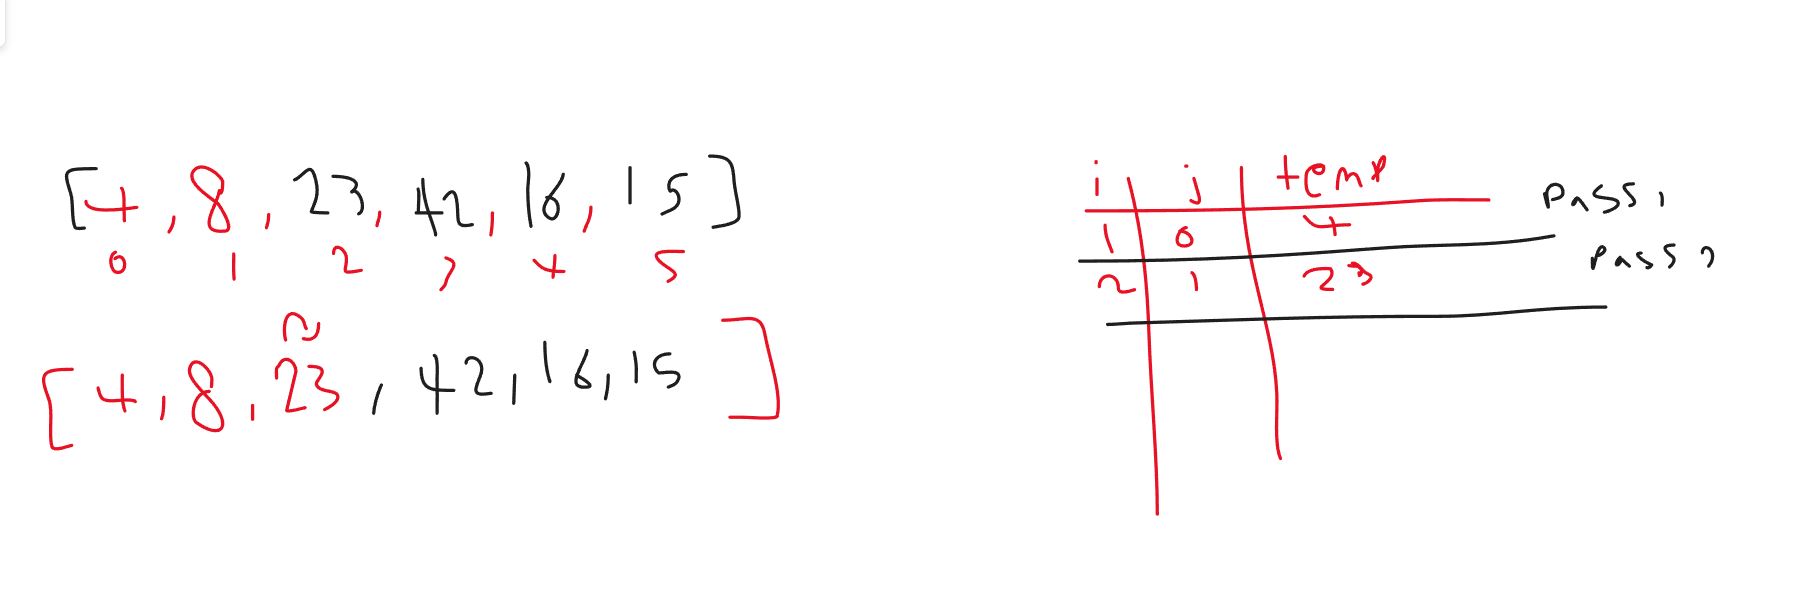 [4, 8, 23, 42, 16, 15]
0 1 2 3 4 5
[4, 8, 23, 42, 16, 15]
i j temp
1 0 4 Pass 1
2 1 23 Pass 2